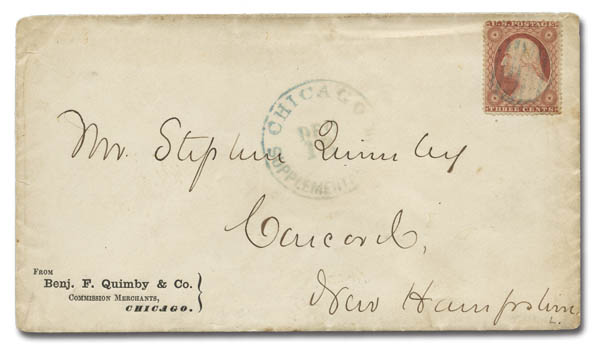 U.S. POSTAGE
THREE CENTS
CHICAGO
DEC
SUPPLEMENT
Mr. Stephen Quimby
Concord,
New Hampshire
FROM
Benj. F. Quimby & Co.
COMMISSION MERCHANTS,
CHICAGO.